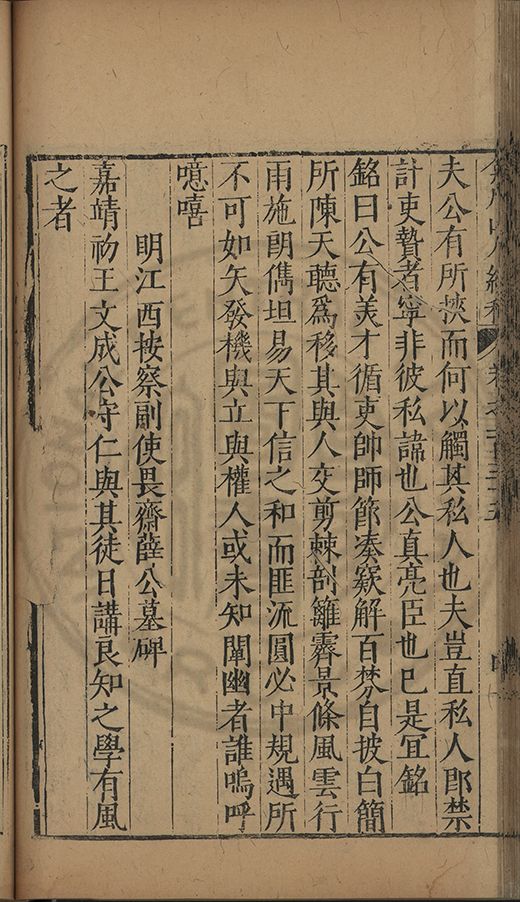 夫公有所挾而何以觸其私人也夫豈直私人即禁
計吏贄者寧非彼私諱也公真亮臣也已是冝銘
銘曰公有美才循吏帥師節凑窾解百棼自披白簡
所陳天聽爲移其與人交剪棘剖籬霽景條風雲行
雨施朗儁坦易天下信之和而匪流圓必中規遇所
不可如矢發機與立與權人或未知闡幽者誰嗚呼
噫嘻
明江西按察副使畏齋薛公墓碑
嘉靖初王文成公守仁與其徒日講良知之學有風
之者